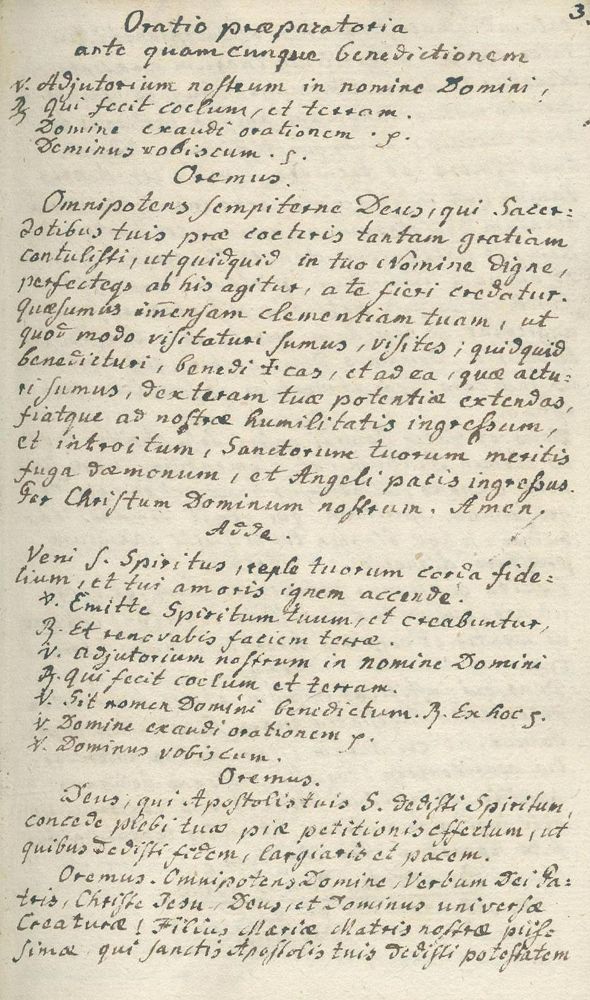 3
Oratio præparatoria
ante quamcunque benedictionem
V. Adjutorium nostrum in nomine Domini,
R. qui fecit coelum, et terram.
Domine exaudi orationem. p.
Dominus vobiscum. p.
Oremus.
Omnipotens sempiterne Deus, qui Sacer=
dotibus tuis præ coeteris tantam gratiam
contulisti, ut quidquid in tuo Nomine digne,
perfecteqȝ ab his agitur, a te fieri credatur.
quæsumus im̃ensam clementiam tuam, ut
quod modo visitaturi sumus, visites; quidquid
benedicturi, benedi ☩ cas, et ad ea, quæ actu=
ri sumus, dexteram tuæ potentiæ extendas,
fiatque ad nostræ humilitatis ingressum,
et introitum, Sanctorum tuorum meritis
fuga dæmonum, et Angeli pacis ingressus.
Per Christum Dominum nostrum. Amen.
Adde.
Veni S. Spiritus, reple tuorum corda fide=
lium, et tui amoris ignem accende.
V. Emitte Spiritum tuum, et creabuntur,
R. Et renovabis faciem terræ.
V. adjutorium nostrum in nomine Domini
R. qui fecit coelum et terram.
V. Sit nomen Domini benedictum. R. Ex hoc p.
V. Domine exaudi orationem p.
V. Dominus vobiscum.
Oremus.
Deus, qui Apostolis tuis S. dedisti Spiritum,
concede plebi tuæ piæ petitionis effectum, ut
quibus dedisti fidem, largiaris et pacem.
Oremus. Omnipotens Domine, Verbum Dei Pa=
tris, Christe Jesu, Deus, et Dominus universæ
Creaturæ! Filius Mariæ Matris nostræ piis=
simæ qui sanctis Apostolis tuis dedisti potestatem